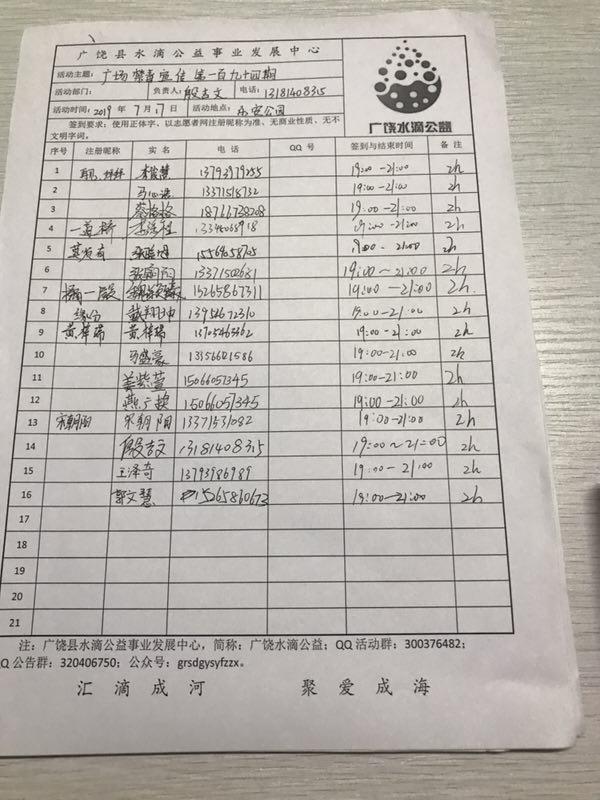 广饶县水滴公益事业发展中心
活动主题: 广场禁毒宣传 第一百九十四期
活动部门: 负责人: 殷吉文 电话: 13181408315
活动时间: 2019 年 7 月 17 日 活动地点: 乐安公园
广饶水滴公益
签到要求: 使用正体字、以志愿者网注册昵称为准、无商业性质、无不
文明字词。
序号 注册昵称 实名 电话 QQ 号 签到与结束时间 备注
1 13793979255 19:00-21:00 2h
2 13371518732 19:00-21:00 2h
3 18766738208 19:00-21:00 2h
4 19:00-21:00 2h
5 19:00-21:00 2h
6 19:00~21:00 2h
7 15265867311 19:00-21:00 2h
8 缘分 13954672310 19:00-21:00 2h
9 黄梓瑞 黄梓瑞 19:00-21:00 2h
10 马盛豪 13156601586 19:00-21:00 2h
11 姜紫萱 15066051345 19:00-21:00 2h
12 燕 15066051345 19:00-21:00 2h
13 宋朝阳 宋朝阳 13371531092 19:00-21:00 2h
14 殷吉文 13181408315 19:00~21:00 2h
15 王泽奇 13793986989 19:00-21:00 2h
16 郭文慧 15265860673 19:00-21:00 2h
17
18
19
20
21
注: 广饶县水滴公益事业发展中心, 简称: 广饶水滴公益; QQ 活动群: 300376482;
QQ 公告群: 320406750; 公众号: grsdgysyfzzx。
汇滴成河 聚爱成海